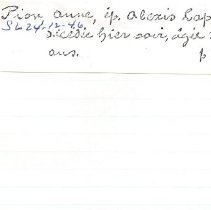 Pion Anne, ép. Alexis Lap
SL 24-12-46
décédée hier soir, âgée
ans. p